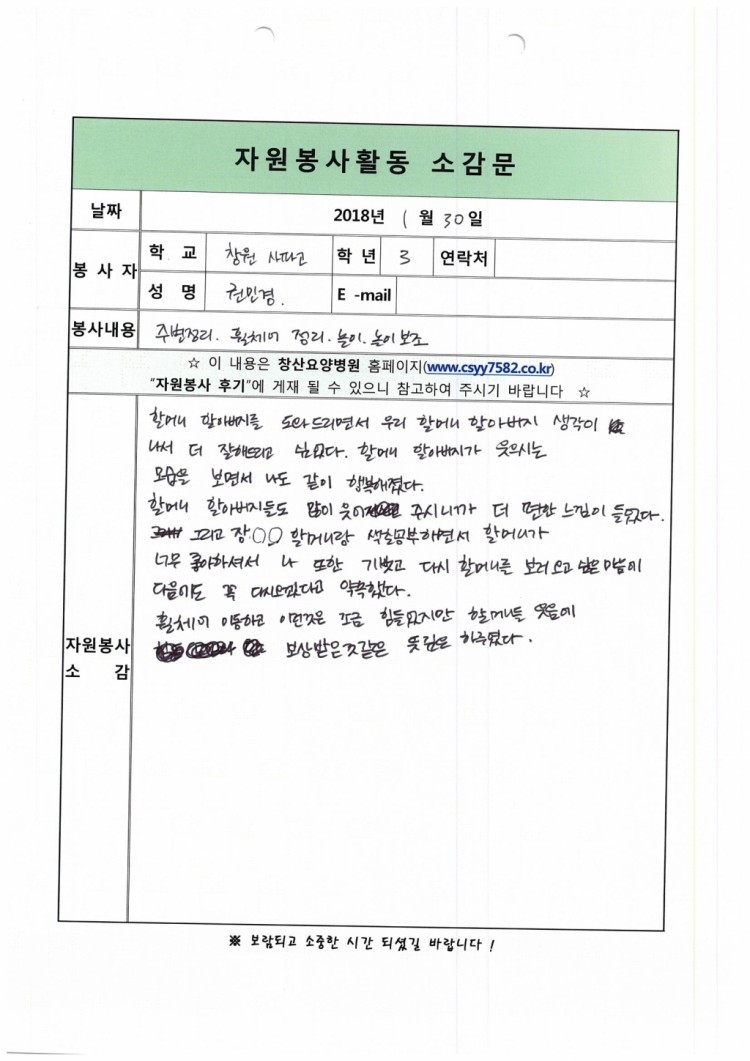 자원봉사활동 소감문
날짜 2018년 1 월 30 일
봉사자 학 교 창원 사파고 학 년 3 연락처
성 명 권민경. E -mail
봉사내용 주변정리. 휠체어 정리. 놀이. 놀이 보조
☆ 이 내용은 창산요양병원 홈페이지(www.csyy7582.co.kr)
"자원봉사 후기"에 게재 될 수 있으니 참고하여 주시기 바랍니다 ☆
자원봉사 소 감
할머니 할아버지를 도와드리면서 우리 할머니 할아버지 생각이
나서 더 잘해드리고 싶었다. 할머니 할아버지가 웃으시는
모습을 보면서 나도 같이 행복해졌다.
할머니 할아버지들도 많이 웃어 주시니가 더 편한 느낌이 들었다.
그리고 장○○ 할머니랑 색칠공부하면서 할머니가
너무 좋아하셔서 나 또한 기쁘고 다시 할머니를 보러오고 싶은 마음에
다음에도 꼭 다시오겠다고 약속했다.
휠체어 이동하고 이런것은 조금 힘들었지만 할머니들 웃음에
보상받은것같은 뜻깊은 하루였다.
※ 보람되고 소중한 시간 되셨길 바랍니다 !